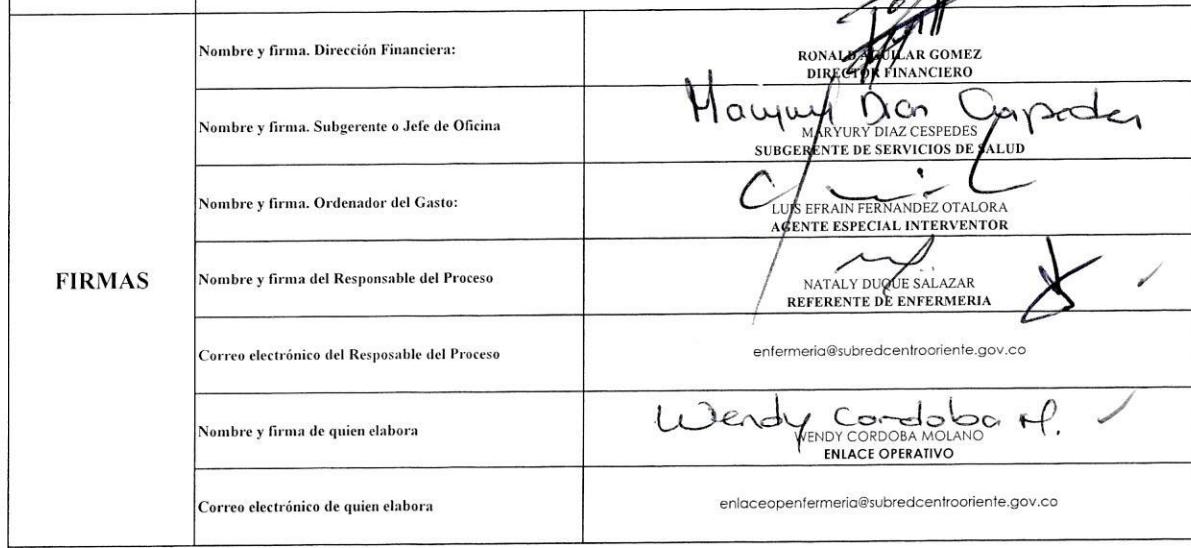 Nombre y firma. Dirección Financiera:
RONALD AGUILAR GOMEZ
DIRECTOR FINANCIERO
Nombre y firma. Subgerente o Jefe de Oficina
Maryury Diaz Cespedes
MARYURY DIAZ CESPEDES
SUBGERENTE DE SERVICIOS DE SALUD
Nombre y firma. Ordenador del Gasto:
LUIS EFRAIN FERNANDEZ OTALORA
AGENTE ESPECIAL INTERVENTOR
FIRMAS
Nombre y firma del Responsable del Proceso
NATALY DUQUE SALAZAR
REFERENTE DE ENFERMERIA
Correo electrónico del Resposable del Proceso
enfermeria@subredcentrooriente.gov.co
Nombre y firma de quien elabora
Wendy Cordoba M.
WENDY CORDOBA MOLANO
ENLACE OPERATIVO
Correo electrónico de quien elabora
enlaceopenfermeria@subredcentrooriente.gov.co